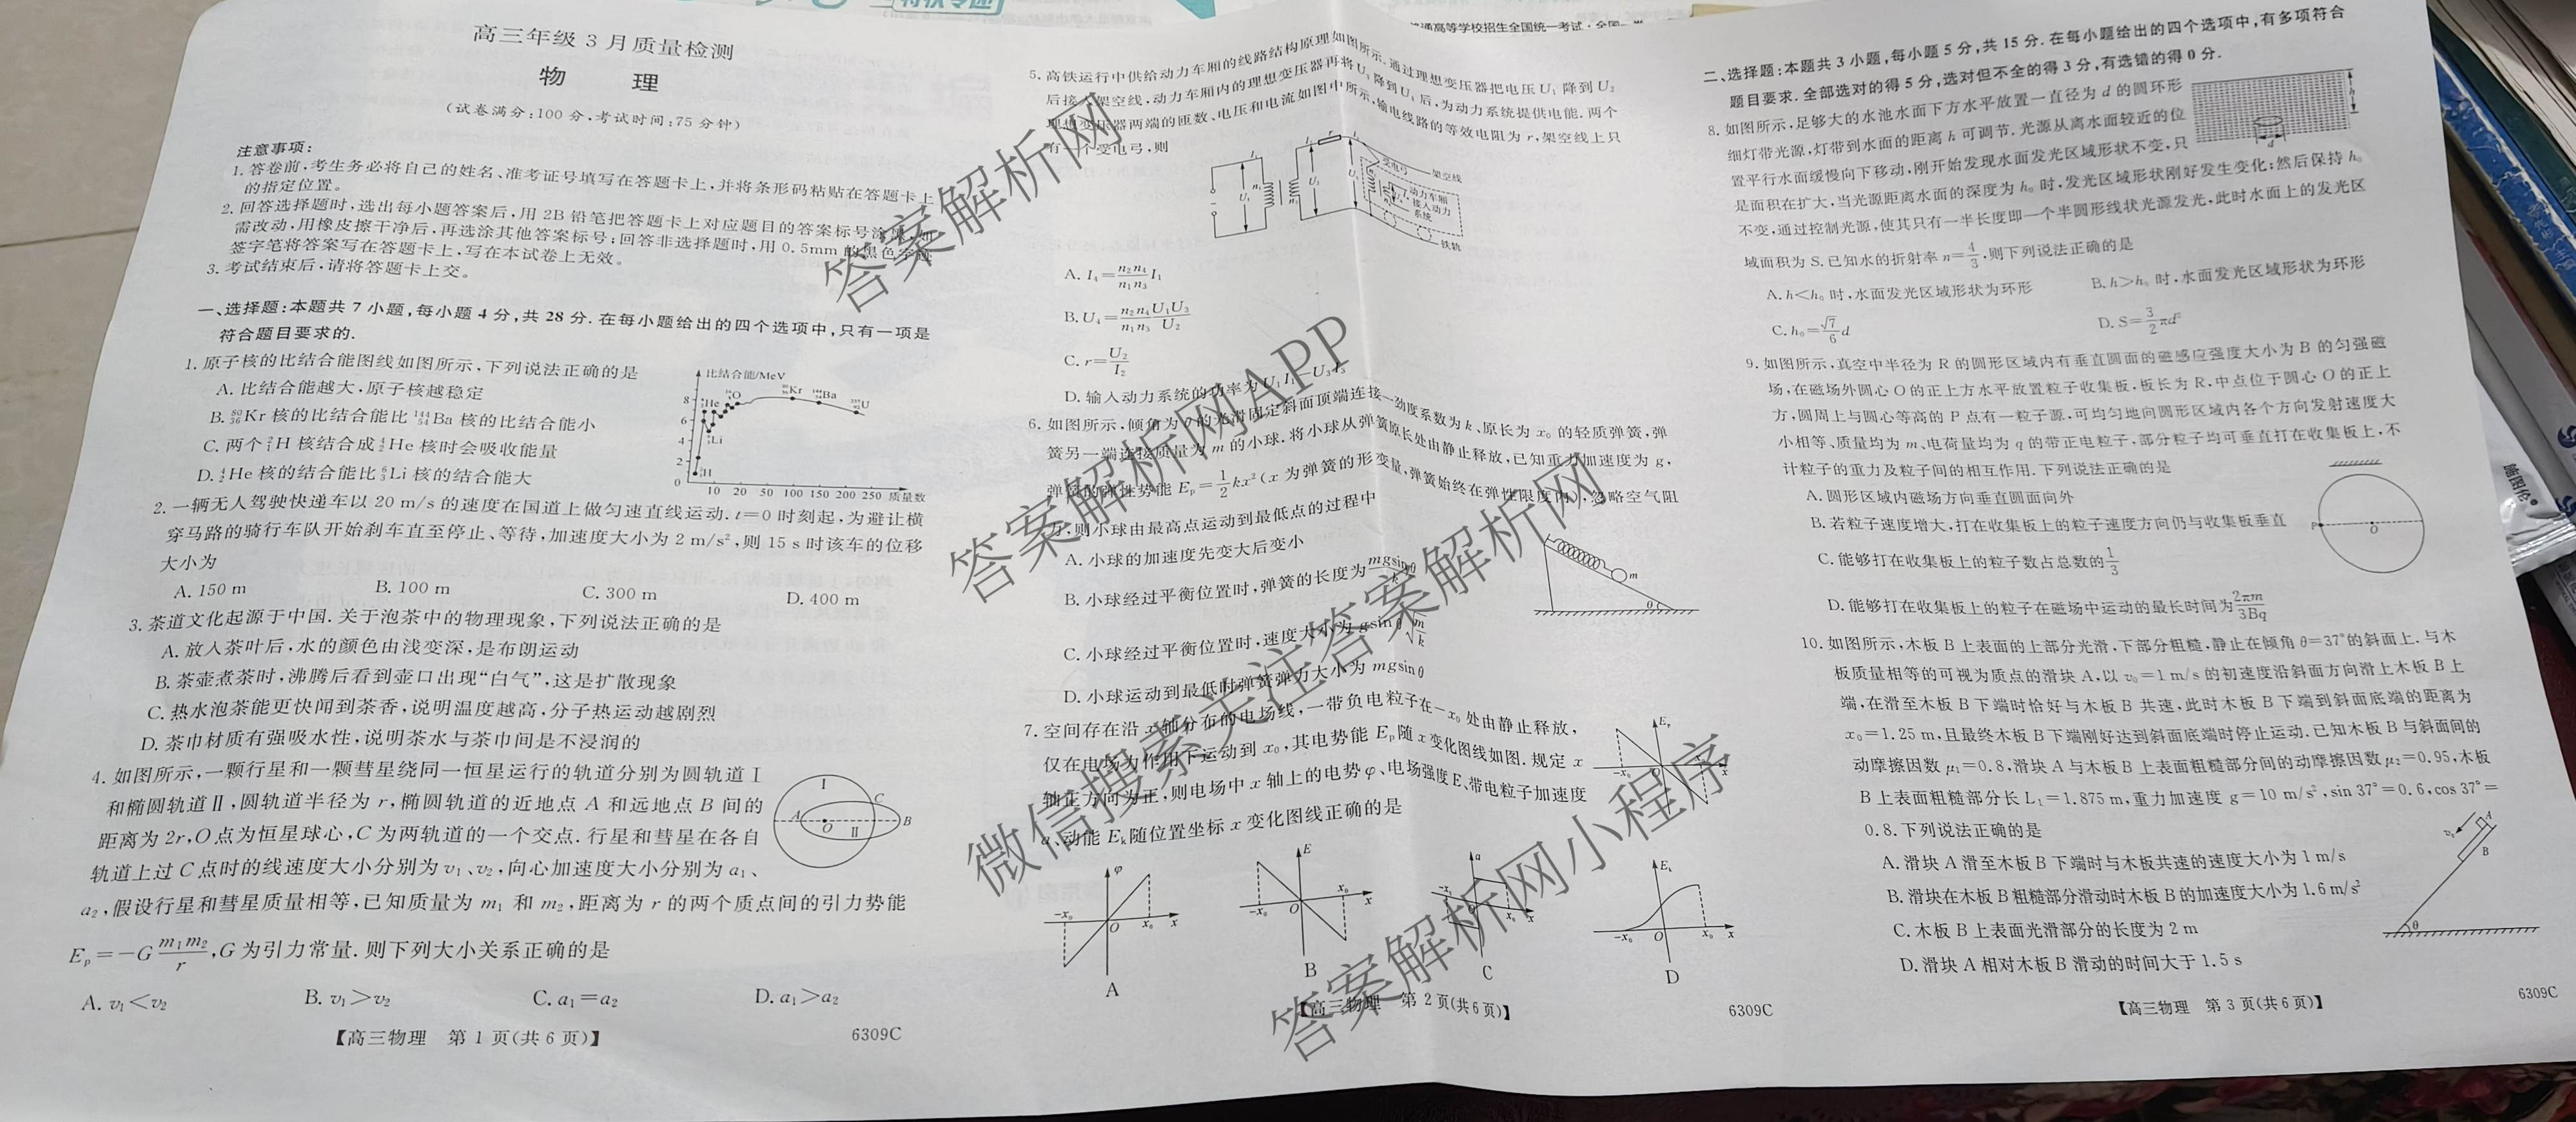 高三年级 3 月质量检测
物 理
(试卷满分:100 分,考试时间:75 分钟)
注意事项:
1. 答卷前,考生务必将自己的姓名、准考证号填写在答题卡上,并将条形码粘贴在答题卡上
的指定位置。
2. 回答选择题时,选出每小题答案后,用 2B 铅笔把答题卡上对应题目的答案标号涂
需改动,用橡皮擦干净后,再选涂其他答案标号;回答非选择题时,用 0.5mm 的黑色字迹
签字笔将答案写在答题卡上,写在本试卷上无效。
3. 考试结束后,请将答题卡上交。
一、选择题:本题共 7 小题,每小题 4 分,共 28 分. 在每小题给出的四个选项中,只有一项是
符合题目要求的.
1. 原子核的比结合能图线如图所示,下列说法正确的是
A. 比结合能越大,原子核越稳定
B. ⁸⁰₃₆Kr 核的比结合能比 ¹⁴⁴₅₄Ba 核的比结合能小
C. 两个²₁H 核结合成⁴₂He 核时会吸收能量
D. ⁴₂He 核的结合能比⁶₃Li 核的结合能大
比结合能/MeV
8
6
4
2
0
He
O
Li
H
Kr
Ba
U
10 20 50 100 150 200 250 质量数
2. 一辆无人驾驶快递车以 20 m/s 的速度在国道上做匀速直线运动. t=0 时刻起,为避让横
穿马路的骑行车队开始刹车直至停止、等待,加速度大小为 2 m/s²,则 15 s 时该车的位移
大小为
A. 150 m B. 100 m C. 300 m D. 400 m
3. 茶道文化起源于中国. 关于泡茶中的物理现象,下列说法正确的是
A. 放入茶叶后,水的颜色由浅变深,是布朗运动
B. 茶壶煮茶时,沸腾后看到壶口出现“白气”,这是扩散现象
C. 热水泡茶能更快闻到茶香,说明温度越高,分子热运动越剧烈
D. 茶巾材质有强吸水性,说明茶水与茶巾间是不浸润的
4. 如图所示,一颗行星和一颗彗星绕同一恒星运行的轨道分别为圆轨道Ⅰ
和椭圆轨道Ⅱ,圆轨道半径为 r,椭圆轨道的近地点 A 和远地点 B 间的
距离为 2r,O 点为恒星球心,C 为两轨道的一个交点. 行星和彗星在各自
轨道上过 C 点时的线速度大小分别为 v₁、v₂,向心加速度大小分别为 a₁、
a₂,假设行星和彗星质量相等,已知质量为 m₁ 和 m₂,距离为 r 的两个质点间的引力势能
Eₚ=−G m₁m₂/r,G 为引力常量. 则下列大小关系正确的是
Ⅰ
C
A
O
Ⅱ
B
A. v₁<v₂ B. v₁>v₂ C. a₁=a₂ D. a₁>a₂
【高三物理 第 1 页(共 6 页)】 6309C
5. 高铁运行中供给动力车厢的线路结构原理如图所示. 通过理想变压器把电压 U₁ 降到 U₂
后接入架空线,动力车厢内的理想变压器再将 U₃ 降到 U₄ 后,为动力系统提供电能. 两个
理想变压器两端的匝数、电压和电流如图中所示,输电线路的等效电阻为 r,架空线上只
有一个受电弓,则
受电弓
架空线
动力车厢
接入动力
系统
铁轨
A. I₄=n₂n₄/n₁n₃ I₁
B. U₄=n₂n₄/n₁n₃ U₁U₃/U₂
C. r=U₂/I₂
D. 输入动力系统的功率为 U₁I₁−U₃I₃
6. 如图所示,倾角为 θ 的光滑固定斜面顶端连接一劲度系数为 k、原长为 x₀ 的轻质弹簧,弹
簧另一端连接质量为 m 的小球. 将小球从弹簧原长处由静止释放,已知重力加速度为 g,
弹簧的弹性势能 Eₚ=1/2kx²(x 为弹簧的形变量,弹簧始终在弹性限度内),忽略空气阻
力,则小球由最高点运动到最低点的过程中
A. 小球的加速度先变大后变小
B. 小球经过平衡位置时,弹簧的长度为mgsinθ/k
C. 小球经过平衡位置时,速度大小为 gsinθ√(m/k)
D. 小球运动到最低时弹簧弹力大小为 mgsinθ
m
θ
7. 空间存在沿 x 轴分布的电场线,一带负电粒子在−x₀ 处由静止释放,
仅在电场力作用下运动到 x₀,其电势能 Eₚ随 x 变化图线如图. 规定 x
轴正方向为正,则电场中 x 轴上的电势 φ、电场强度 E、带电粒子加速度
a、动能 Eₖ随位置坐标 x 变化图线正确的是
Eₚ
−x₀ O x
φ
−x₀ O x₀ x
A
E
−x₀ O x₀ x
B
a
O x₀ x
C
Eₖ
−x₀ O x₀ x
D
【高三物理 第 2 页(共 6 页)】 6309C
普通高等学校招生全国统一考试
二、选择题:本题共 3 小题,每小题 5 分,共 15 分. 在每小题给出的四个选项中,有多项符合
题目要求. 全部选对的得 5 分,选对但不全的得 3 分,有选错的得 0 分.
8. 如图所示,足够大的水池水面下方水平放置一直径为 d 的圆环形
细灯带光源,灯带到水面的距离 h 可调节. 光源从离水面较近的位
置平行水面缓慢向下移动,刚开始发现水面发光区域形状不变,只
是面积在扩大,当光源距离水面的深度为 h₀ 时,发光区域形状刚好发生变化;然后保持 h₀
不变,通过控制光源,使其只有一半长度即一个半圆形线状光源发光,此时水面上的发光区
域面积为 S. 已知水的折射率 n=4/3,则下列说法正确的是
h
d
A. h<h₀ 时,水面发光区域形状为环形 B. h>h₀ 时,水面发光区域形状为环形
C. h₀=√7/6 d D. S=3/2πd²
9. 如图所示,真空中半径为 R 的圆形区域内有垂直圆面的磁感应强度大小为 B 的匀强磁
场,在磁场外圆心 O 的正上方水平放置粒子收集板,板长为 R,中点位于圆心 O 的正上
方,圆周上与圆心等高的 P 点有一粒子源,可均匀地向圆形区域内各个方向发射速度大
小相等、质量均为 m、电荷量均为 q 的带正电粒子,部分粒子均可垂直打在收集板上,不
计粒子的重力及粒子间的相互作用. 下列说法正确的是
A. 圆形区域内磁场方向垂直圆面向外
B. 若粒子速度增大,打在收集板上的粒子速度方向仍与收集板垂直
C. 能够打在收集板上的粒子数占总数的1/3
D. 能够打在收集板上的粒子在磁场中运动的最长时间为2πm/3Bq
P
O
10. 如图所示,木板 B 上表面的上部分光滑,下部分粗糙,静止在倾角 θ=37°的斜面上. 与木
板质量相等的可视为质点的滑块 A,以 v₀=1 m/s 的初速度沿斜面方向滑上木板 B 上
端,在滑至木板 B 下端时恰好与木板 B 共速,此时木板 B 下端到斜面底端的距离为
x₀=1.25 m,且最终木板 B 下端刚好达到斜面底端时停止运动. 已知木板 B 与斜面间的
动摩擦因数 μ₁=0.8,滑块 A 与木板 B 上表面粗糙部分间的动摩擦因数 μ₂=0.95,木板
B 上表面粗糙部分长 L₁=1.875 m,重力加速度 g=10 m/s²,sin 37°=0.6,cos 37°=
0.8. 下列说法正确的是
A. 滑块 A 滑至木板 B 下端时与木板共速的速度大小为 1 m/s
B. 滑块在木板 B 粗糙部分滑动时木板 B 的加速度大小为 1.6 m/s²
C. 木板 B 上表面光滑部分的长度为 2 m
D. 滑块 A 相对木板 B 滑动的时间大于 1.5 s
v₀
A
B
θ
【高三物理 第 3 页(共 6 页)】 6309C
答案解析网
答案解析网APP
微信搜索关注答案解析网
答案解析网小程序